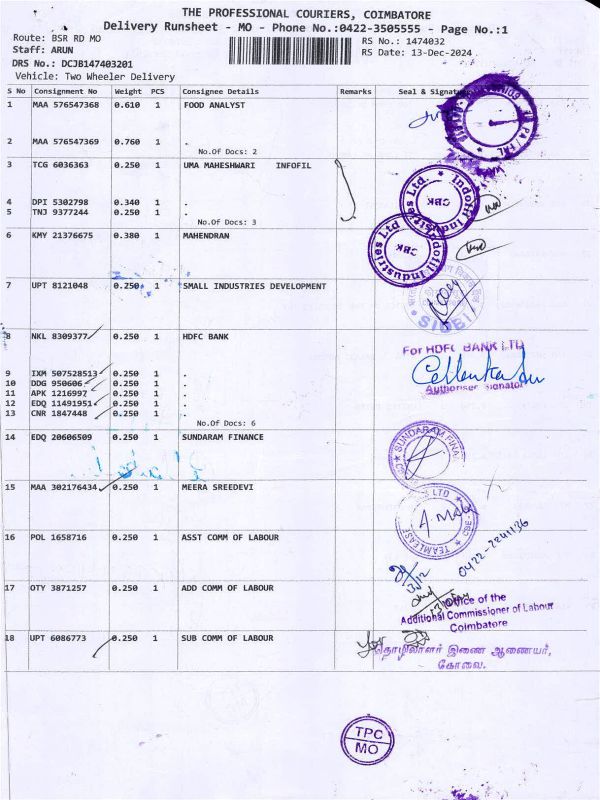 THE PROFESSIONAL COURIERS, COIMBATORE
Delivery Runsheet - MO - Phone No.:0422-3505555 - Page No.:1
Route: BSR RD MO
Staff: ARUN
DRS No.: DCJB147403201
Vehicle: Two Wheeler Delivery
RS No.: 1474032
RS Date: 13-Dec-2024
S No Consignment No Weight PCS Consignee Details Remarks Seal & Signature
1 MAA 576547368 0.610 1 FOOD ANALYST
2 MAA 576547369 0.760 1 .
No.Of Docs: 2
3 TCG 6036363 0.250 1 UMA MAHESHWARI INFOFIL
4 DPI 5302798 0.340 1 .
5 TNJ 9377244 0.250 1 .
No.Of Docs: 3
Indofil Industries Ltd.
CBK
Indofil Industries Ltd
CBK
6 KMY 21376675 0.380 1 MAHENDRAN
7 UPT 8121048 0.250 1 SMALL INDUSTRIES DEVELOPMENT
SIDBI
8 NKL 8309377 0.250 1 HDFC BANK
For HDFC BANK LTD
Authoriser Signator
9 IXM 507528513 0.250 1 .
10 DDG 950606 0.250 1 .
11 APK 1216997 0.250 1 .
12 EDQ 11491951 0.250 1 .
13 CNR 1847448 0.250 1 .
No.Of Docs: 6
14 EDQ 20606509 0.250 1 SUNDARAM FINANCE
SUNDARAM FINA
15 MAA 302176434 0.250 1 MEERA SREEDEVI
TEAMLEASE
LTD
CBE
16 POL 1658716 0.250 1 ASST COMM OF LABOUR
0422-2241136
13/12
17 OTY 3871257 0.250 1 ADD COMM OF LABOUR
Office of the
Additional Commissioner of Labour
Coimbatore
18 UPT 6086773 0.250 1 SUB COMM OF LABOUR
தொழிலாளர் இணை ஆணையர்,
கோவை.
TPC
MO